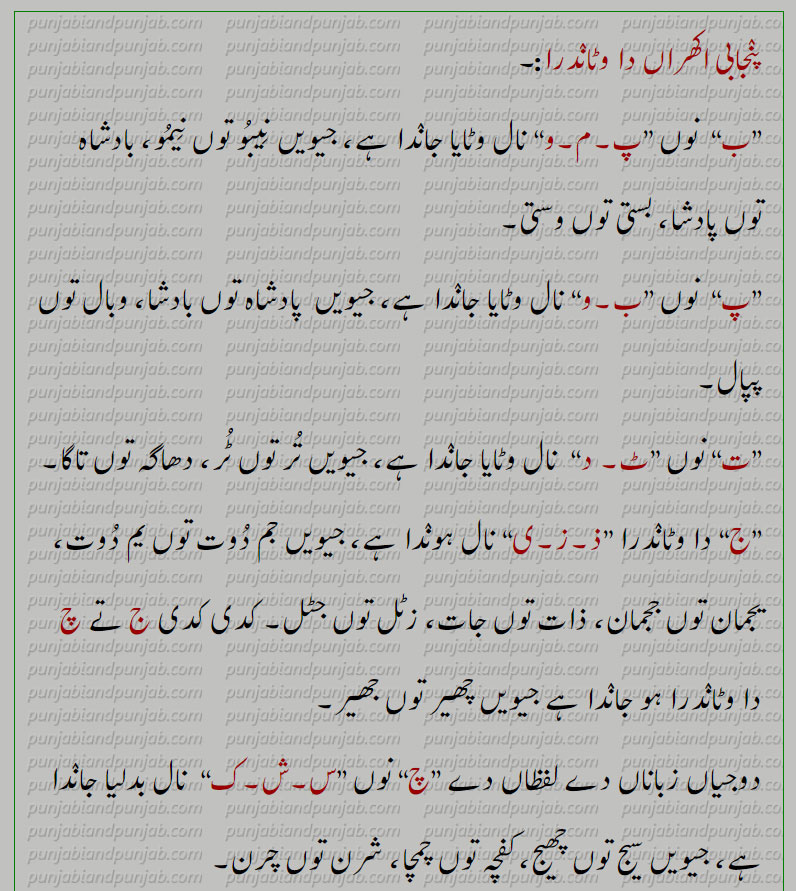 پنجابی اکھراں دا وٹاندرا:۔
”ب“ نوں ”پ۔م۔و“ نال وٹایا جاندا ہے، جیویں نِیبُو توں نِیمُو، بادشاہ
توں پادشا، بستی توں وستی۔
”پ“ نوں ”ب۔و“ نال وٹایا جاندا ہے، جیویں پادشاہ توں بادشا، وبال توں
پپال۔
”ت“ نوں ”ٹ۔ د“ نال وٹایا جاندا ہے، جیویں تُر توں ٹُر، دھاگہ توں تاگا۔
”ج“ دا وٹاندرا ”ذ۔ز۔ی“ نال ہوندا ہے، جیویں جم دُوت توں یم دُوت،
یجمان توں ججمان، ذات توں جات، زٹل توں جٹل۔ کدی کدی ج تے چ
دا وٹاندرا ہو جاندا ہے جیویں چھیر توں جھیر۔
دوجیاں زباناں دے لفظاں دے ”چ“ نوں ”س۔ش۔ک“ نال بدلیا جاندا
ہے، جیویں سیج توں چھیج، کفچہ توں چمچا، شرن توں چرن۔
punjabiandpunjab.com